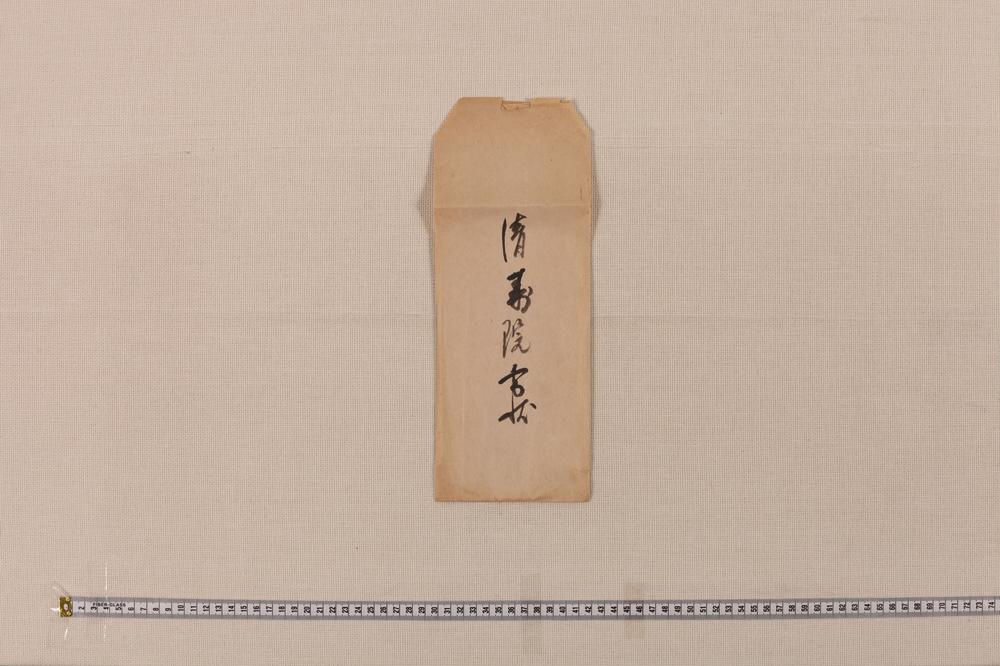 清寿院書状
FIBER-GLASS
2 3 4 5 6 7 8 9 10 11 12 13 14 15 16 17 18 19 20 21 22 23 24 25 26 27 28 29 30 31 32 33 34 35 36 37 38 39 40 41 42 43 44 45 46 47 48 49 50 51 52 53 54 55 56 57 58 59 60 61 62 63 64 65 66 67 68 69 70 71 72 73 74